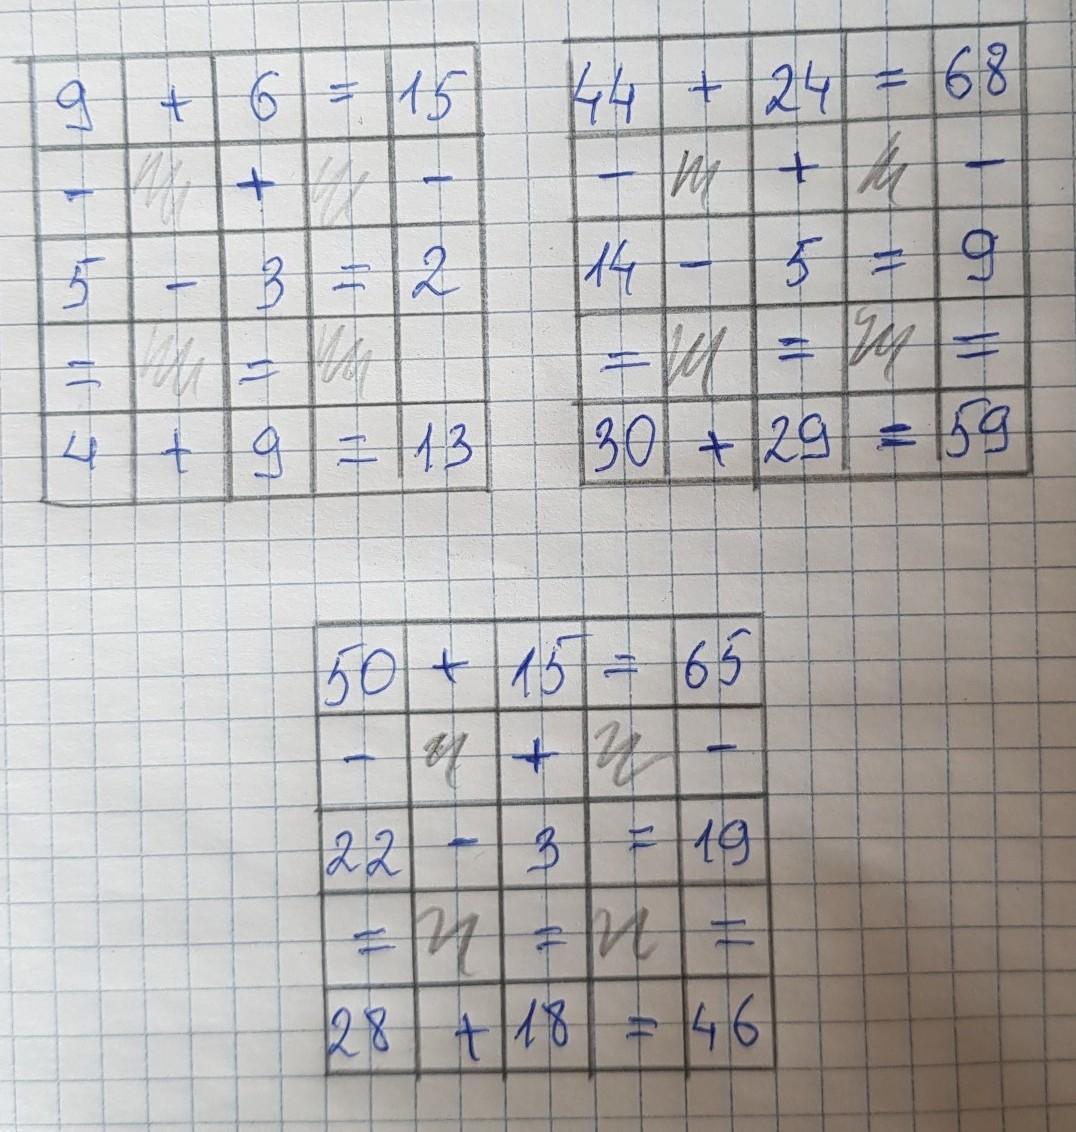 9 + 6 = 15
- + -
5 - 3 = 2
= =
4 + 9 = 13
44 + 24 = 68
- + -
14 - 5 = 9
= = =
30 + 29 = 59
50 + 15 = 65
- + -
22 - 3 = 19
= = =
28 + 18 = 46